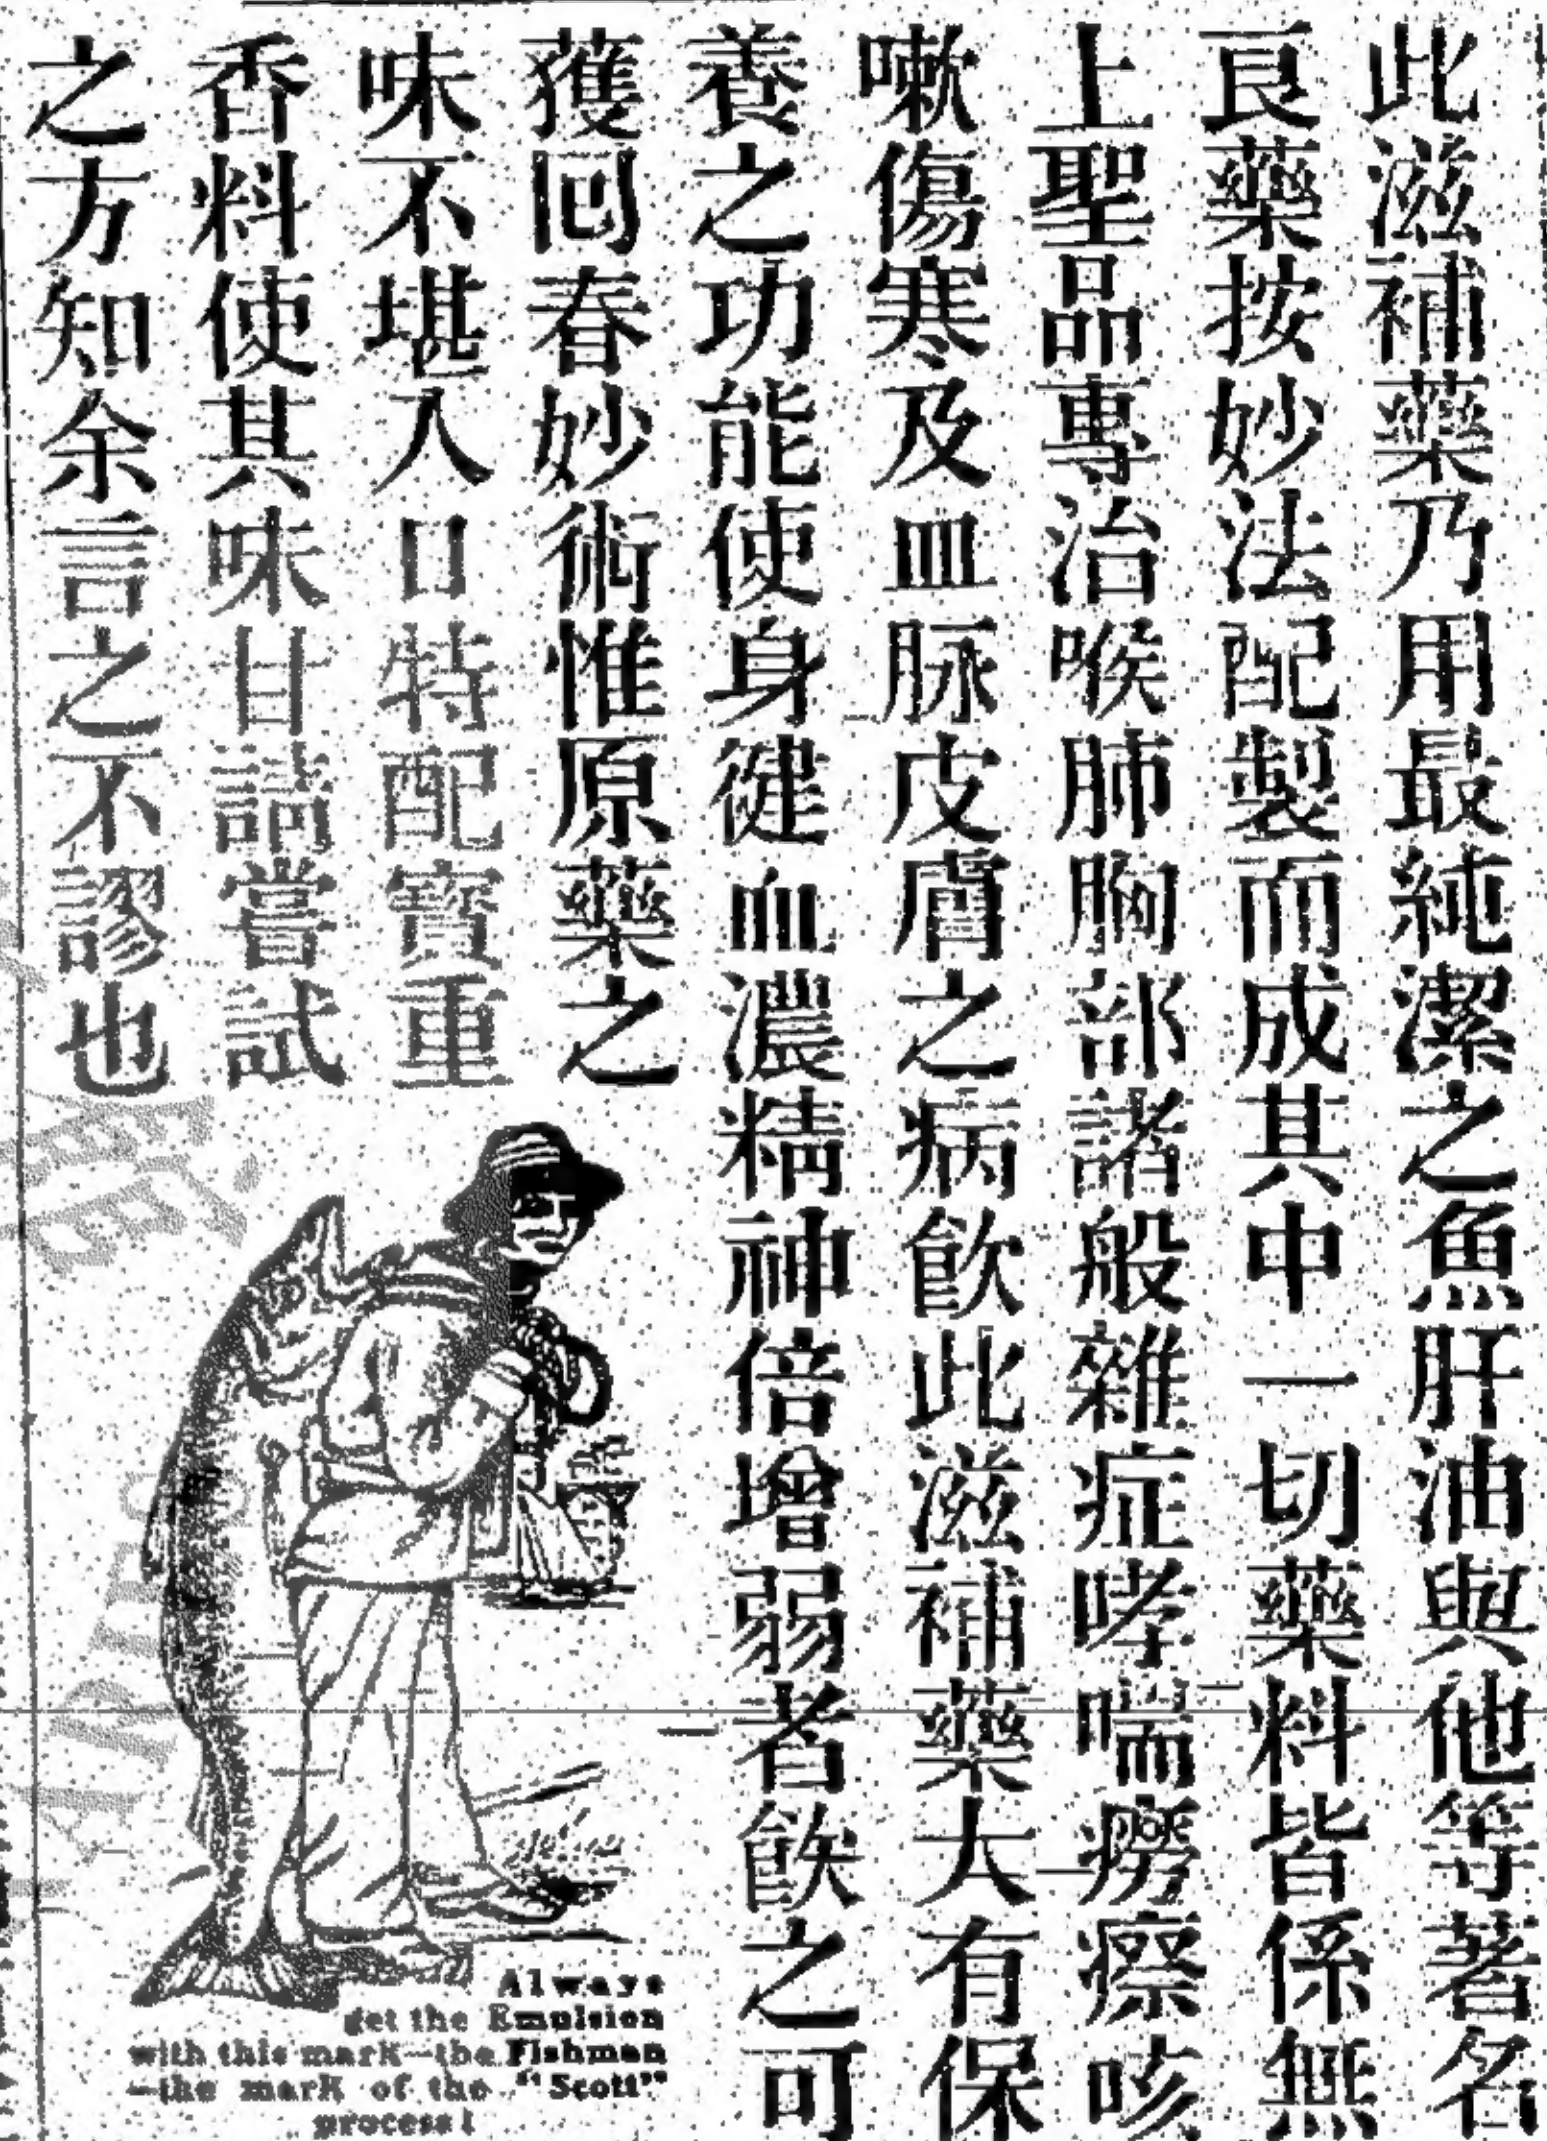 此滋補藥乃用最純潔之魚肝油與他等著名
良藥按妙法配製而成其中一切藥料皆係無
上聖品專治喉肺胸部諸般雜症哮喘癆瘵咳
嗽傷寒及血脉皮膚之病飮此滋補藥大有保
養之功能使身健血濃精神倍增弱者飮之可
獲囘春妙術惟原藥之
味不堪入口特配寶重
香料使其味甘請嘗試
之方知余言之不謬也
Always
get the Emulsion
with this mark—the Fishman
—the mark of the "Scott"
process!